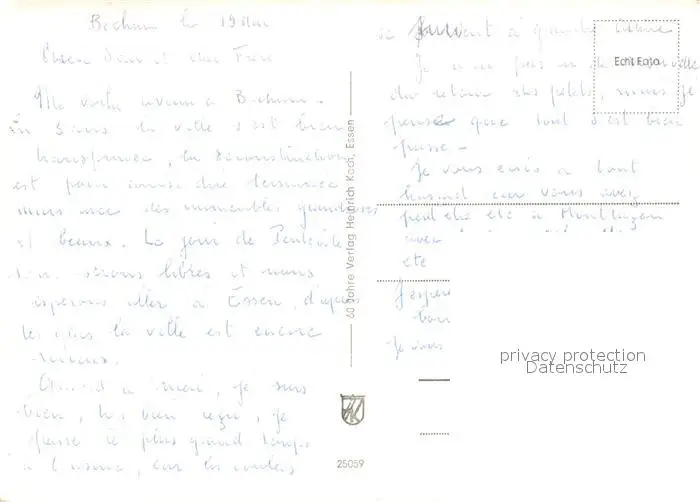 Bochum le 19 Mai
Chère Sœur et cher Frère
Me voilà revenu à Bochum.
En 3 ans la ville s'est bien
transformée, la reconstruction
est pour ainsi dire terminée
mais avec des immeubles grandioses
et beaux. Le jour de Pentecôte
nous serons libres et nous
espérons aller à Essen, d'après
les gens la ville est encore
mieux.
Quant à moi, je suis
bien, très bien reçu, je
passe le plus grand temps
à l'usine, car les
souvent à gauche
Je n'ai pas eu de nouvelle
du retour des petits, mais je
pense que tout s'est bien
passé.
Je vous écris à tout
hasard car vous avez
peut être été à Montluçon
avec
été
J'espère
bon
Je vous
Echt Foto
60 Jahre Verlag Heinrich Koch, Essen
HK
25059
privacy protection
Datenschutz